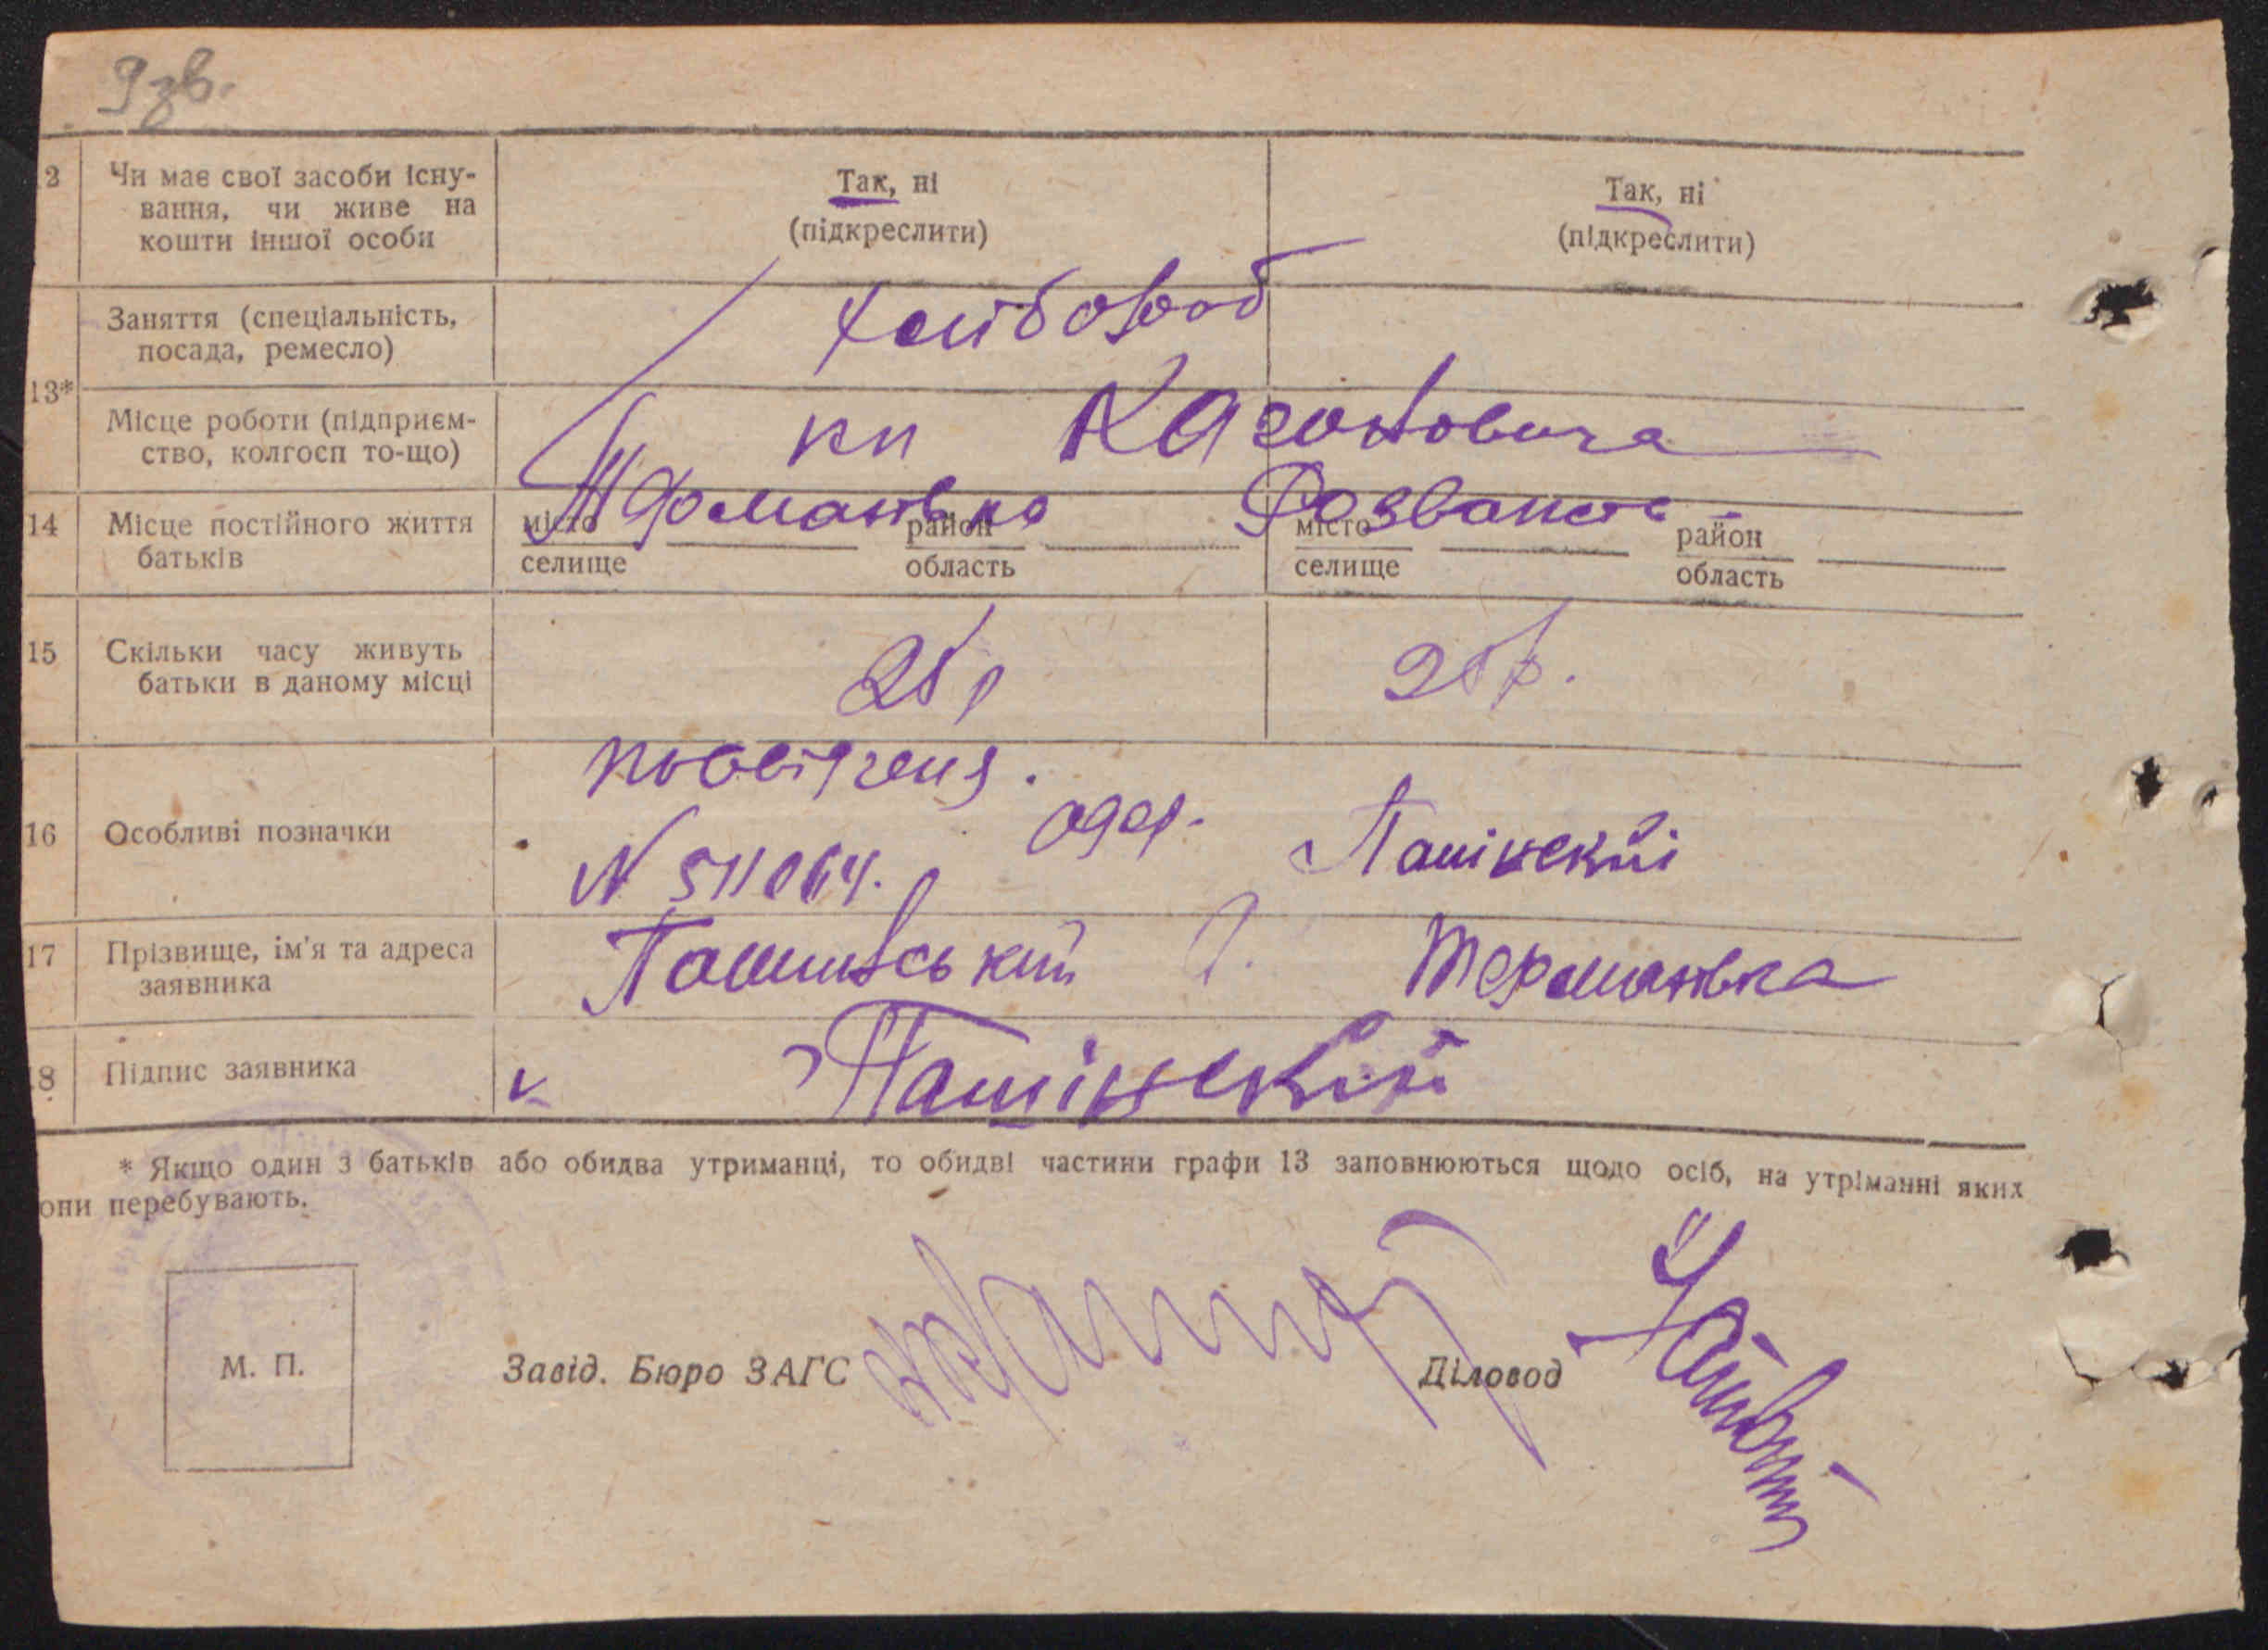 9 зв.
2 Чи має свої засоби існу-
вання, чи живе на
кошти іншої особи
Так, ні
(підкреслити)
Так, ні
(підкреслити)
13* Заняття (спеціальність,
посада, ремесло)
хлібороб
Місце роботи (підприєм-
ство, колгосп то-що)
кп Кагановича
14 Місце постійного життя
батьків
місто
селище
район
область
місто
селище
район
область
15 Скільки часу живуть
батьки в даному місці
25 р
25 р.
16 Особливі позначки
N 511064. одер. Пашінскій
17 Прізвище, ім'я та адреса
заявника
Пашинський Термановка
8 Підпис заявника
v Пашінский
* Якщо один з батьків або обидва утриманці, то обидві частини графи 13 заповнюються щодо осіб, на утріманні яких
они перебувають.
М. П.
Завід. Бюро ЗАГС
Діловод